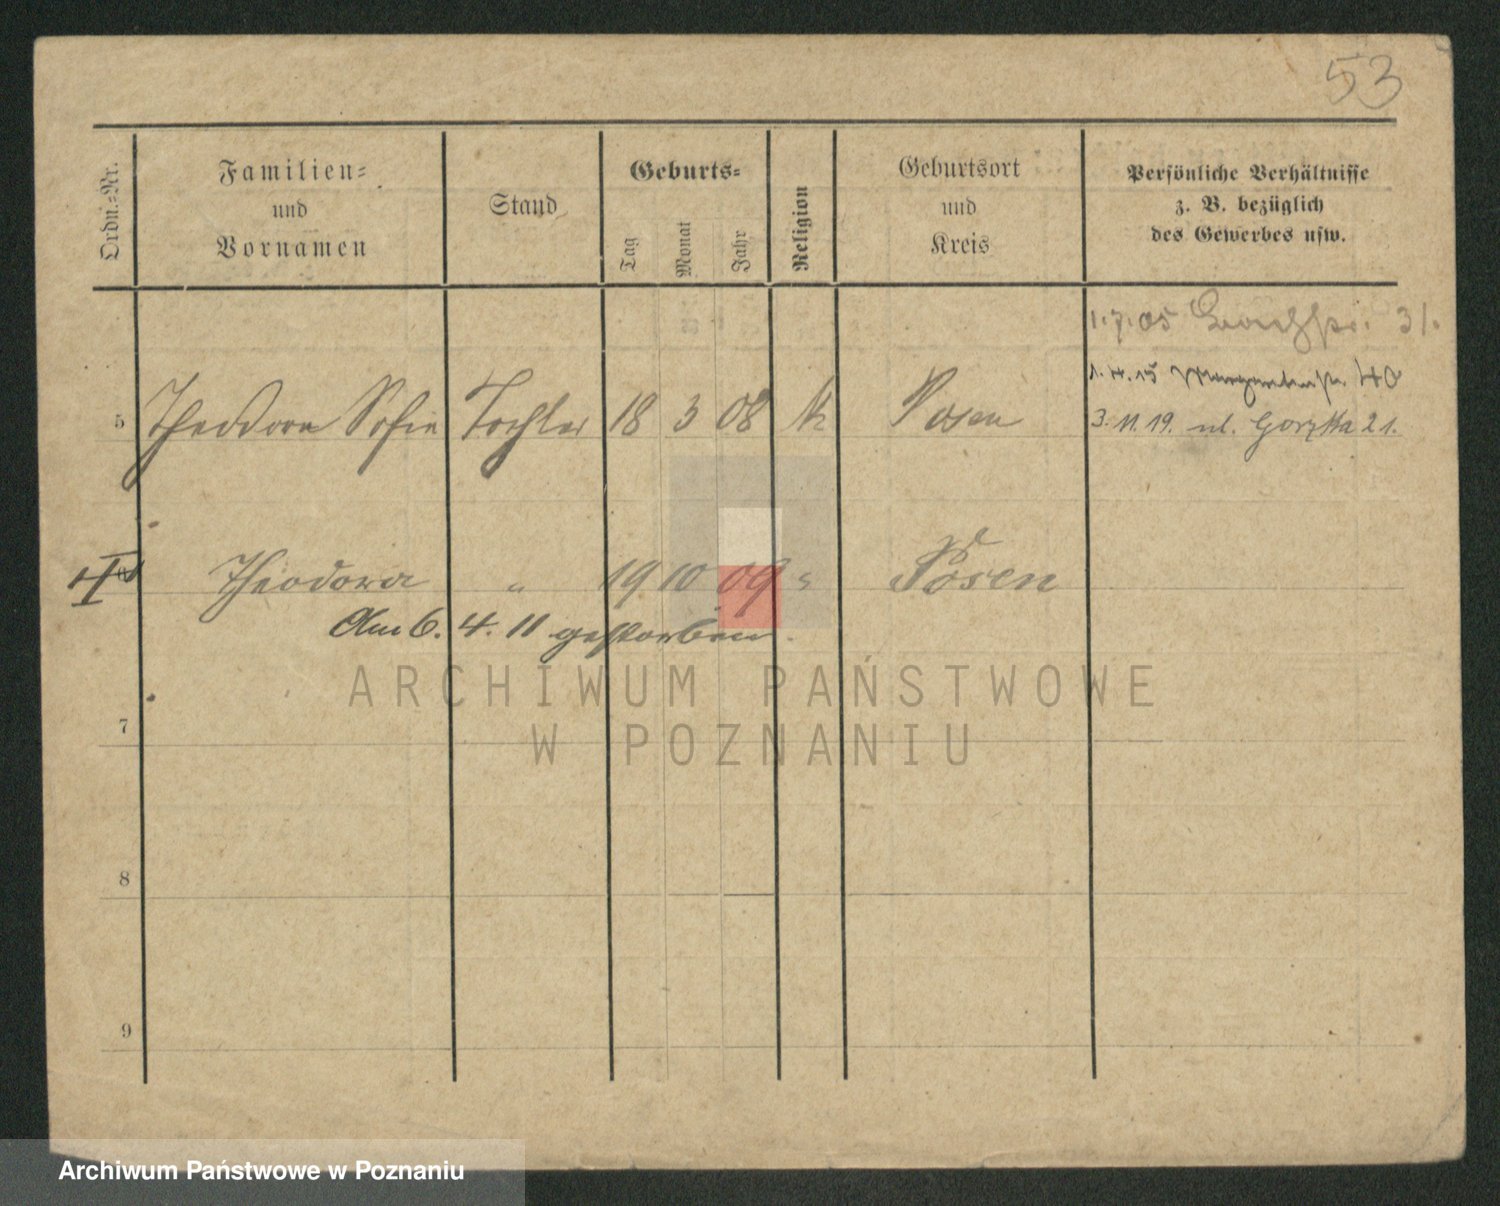 53
Ordn.-Nr.
Familien-
und
Vornamen
Stand
Geburts-
Tag
Monat
Jahr
Religion
Geburtsort
und
Kreis
Persönliche Verhältnisse
z. B. bezüglich
des Gewerbes usw.
1.7.05 31.
1.4.15 40
5 Theodora Sofie Tochter 18 3 08 k Posen
3.11.19. ul. Gorzka 21.
Theodora " 19 10 09 " Posen
Am 6. 4. 11 gestorben.
7
8
9
ARCHIWUM PAŃSTWOWE
W POZNANIU
Archiwum Państwowe w Poznaniu